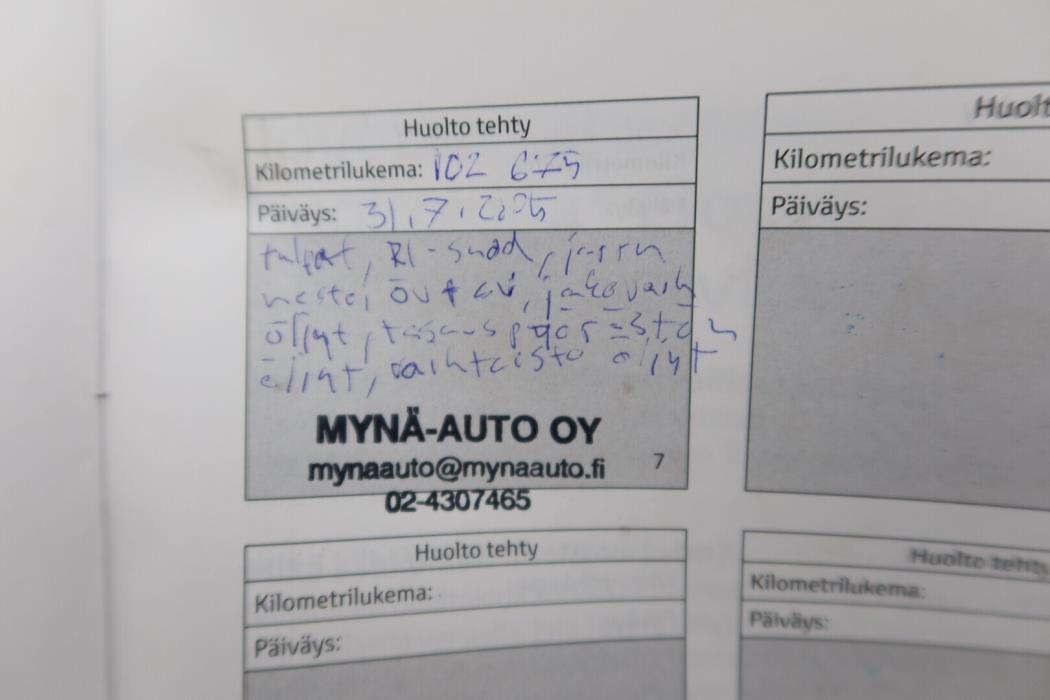 Huolto tehty
Kilometrilukema: 102 675
Päiväys: 31.7.2025
tulpat, RI-suod, jarru
neste, öv + sv, jakovaih
öljyt, tasauspyörästön
öljyt, vaihteisto öljyt
MYNÄ-AUTO OY
mynaauto@mynaauto.fi
7
02-4307465
Huolt
Kilometrilukema:
Päiväys:
Huolto tehty
Kilometrilukema:
Päiväys:
Huolto tehty
Kilometrilukema:
Päiväys: